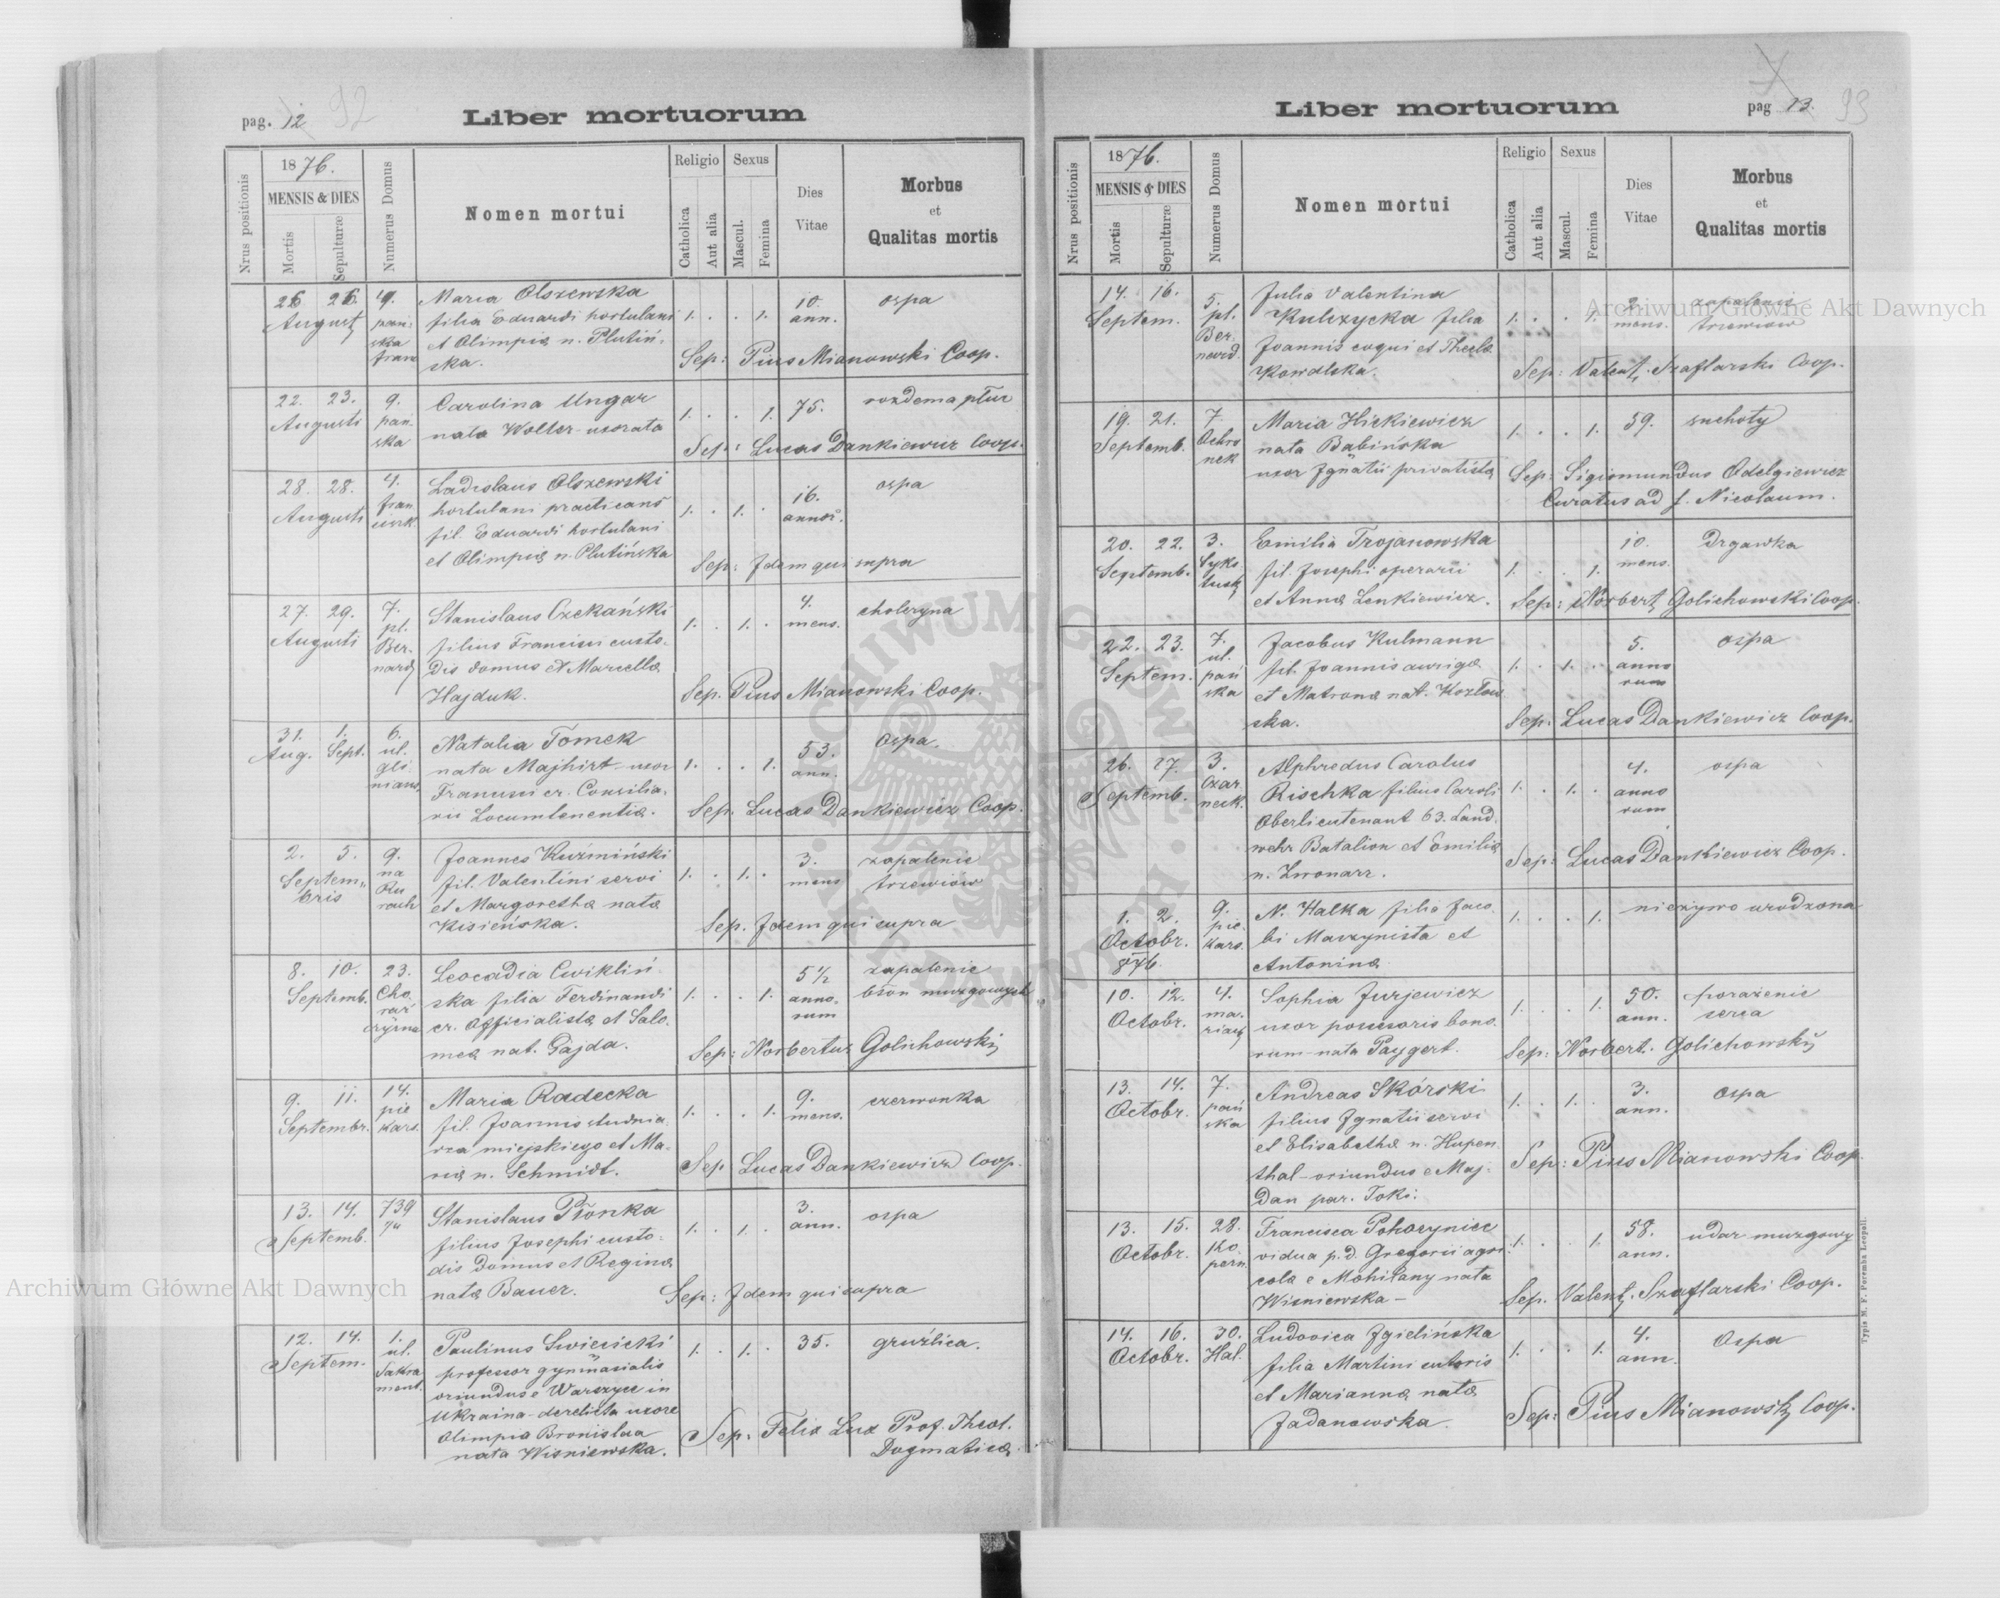 pag. 12 92
Liber mortuorum
Nrus positionis
1876.
MENSIS & DIES
Mortis
Sepulturæ
Numerus Domus
Nomen mortui
Religio
Catholica
Aut alia
Sexus
Mascul.
Femina
Dies
Vitae
Morbus
et
Qualitas mortis
26 26. 4. Maria Olszewska 10. ospa
August pań- filia Eduardi hortulani 1. . . 1. ann.
ska et Olimpia n. Plutiń-
ska. Sep: Pius Mianowski Coop.
22. 23. 9. Carolina Ungar 1. . . 1. 75. rozdema płuc
Augusti pań- nata Wolter uxorata
ska Sep: Lucas Dankiewicz Coop.
28. 28. 4. Ladislaus Olszewski 16. ospa
Augusti hortulani practicans 1. . 1. . annor.
fil. Eduardi hortulani
et Olimpia n. Plutińska Sep: Idem qui supra
27. 29. 7. Stanislaus Czekański 4. choleryna
Augusti pl. filius Francisci custo- 1. . 1. . mens.
Ber- dis domus et Marcella
nard Hajduk. Sep. Pius Mianowski Coop.
31. 1. 6. Natalia Tomek 53. Ospa.
Aug. Sept. ul. nata Majhirt uxor 1. . . 1. ann.
gli Francisci cr. Consilia-
niana rii Locumtenentia. Sep. Lucas Dankiewicz Coop.
2. 5. 9. Joannes Kuźmiński 3. zapalenie
Septem- na fil. Valentini servi 1. . 1. . mens trzewiów
bris Ru et Margaretha nata
rach Kisieńska. Sep. Idem qui supra
8. 10. 23. Leocadia Cwikliń 5½ zapalenie
Septemb. Cho ska filia Ferdinandi 1. . . 1. anno- błon muzgowych
rąż cr. Officialista et Salo- rum
czyzna mea nat. Gajda. Sep: Norbertus Golichowski
9. 11. 14. Maria Radecka 9. czerwonka
Septembr. pie fil. Joannis studnia- 1. . . 1. mens.
kars. rza miejskiego et Ma-
ria n. Schmidt. Sep Lucas Dankiewicz Coop.
13. 14. 739 Stanislaus Płonka 3. ospa
Septemb. 7/4 filius Josephi custo- 1. . 1. . ann.
dis domus et Regina
nata Bauer. Sep: Idem qui supra
12. 14. 1. Paulinus Swięcicki 1. . 1. . 35. gruźlica.
Septem. ul. professor gymnasialis
Sakra oriundus e Warszyce in
ment. Ukraina - derelicta uxore
Olimpia Bronislaa Sep: Felix Lux Prof. Theol.
nata Wisniewska. Dogmatica
Liber mortuorum
pag 13. 93
Nrus positionis
1876.
MENSIS & DIES
Mortis
Sepulturæ
Numerus Domus
Nomen mortui
Religio
Catholica
Aut alia
Sexus
Mascul.
Femina
Dies
Vitae
Morbus
et
Qualitas mortis
14. 16. 5. Julia Valentina 2. zapalenie
Septem. pl. Kulczycka filia 1. . . 1. mens. trzewiów
Ber- Joannis coqui et Thecla
nard. Kowalska. Sep: Valent. Szaflarski Coop.
19. 21. 7. Maria Hickiewicz 59. suchoty
Septemb. Ochro nata Babińska 1. . . 1.
nek uxor Ignatii privatista Sep: Sigismundus Odelgiewicz
Curatus ad s. Nicolaum.
20. 22. 3. Emilia Trojanowska 10. Drgawka
Septemb. Syks fil. Josephi operarii 1. . . 1. mens.
tusk et Anna Lenkiewicz. Sep: Norbert Golichowski Coop.
22. 23. 7. Jacobus Kulmann 5. ospa
Septem. ul. fil. Joannis auriga 1. . 1. . anno
pań et Matrona nat. Kozłow rum
ska ska. Sep: Lucas Dankiewicz Coop.
26. 27. 3. Alphredus Carolus 4. ospa
Septemb. Czar Rischka filius Caroli 1. . 1. . anno
neck. Oberlieutenant 63. Land- rum
wehr Batalion et Emilia
n. Zwonarz. Sep: Lucas Dankiewicz Coop.
1. 2. 9. N. Halka filia Jaco- 1. . . 1. nieżywo urodzona
Octobr. pie bi Maszynista et
876 kars. Antonina
10. 12. 4. Sophia Jurjewicz 50. porażenie
Octobr. ma- uxor possesoris bono- 1. . . 1. ann. serca
riack rum nata Paygert. Sep: Norbert. Golichowski
13. 14. 7. Andreas Skórski 3. ospa
Octobr. pań filius Ignatii servi 1. . 1. . ann.
ska et Elisabetha n. Hupen
thal - oriundus e Maj- Sep: Pius Mianowski Coop.
dan par. Toki.
13. 15. 28. Francisca Pohoryniec 58. udar muzgowy
Octobr. Ko vidua p. d. Gregorii agri- 1. . . 1. ann.
pern. cola e Mohilany nata
Wisniewska - Sep. Valent. Szaflarski Coop.
14. 16. 30. Ludovica Zgielińska 4. Ospa
Octobr. Hal. filia Martini 1. . . 1. ann.
et Marianna nata
Zadanowska. Sep: Pius Mianowski Coop.
Typis M. F. Poremba Leopoli.
Archiwum Główne Akt Dawnych
Archiwum Główne Akt Dawnych
ARCHIWUM GŁÓWNE AKT DAWNYCH